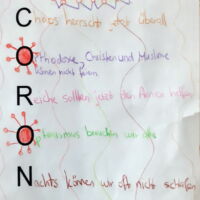 Chaos herrscht jetzt überall
Orthodoxe, Christen und Muslime
können nicht feiern
Reiche sollten jetzt den Armen helfen
Optimismus brauchen wir alle
Nachts können wir oft nicht schlafen